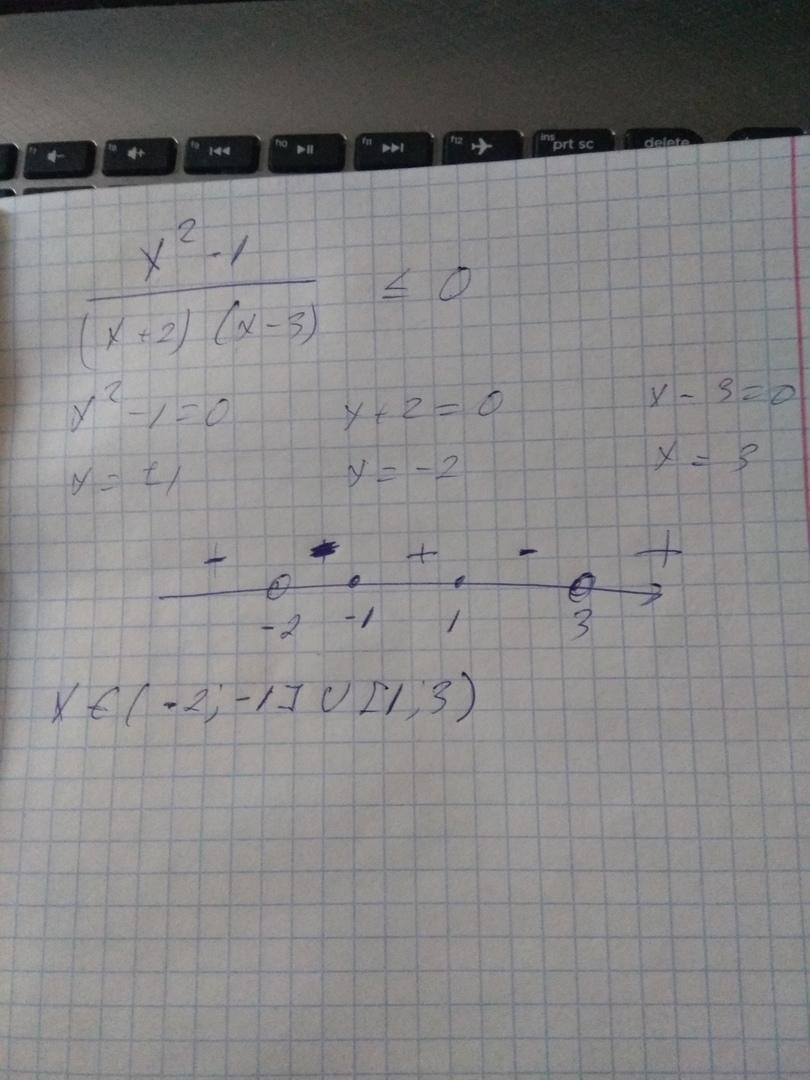 f7 f8 f9 f10 f11 f12 ins prt sc delete
x² - 1
(x + 2) (x - 3)
≤ 0
x² - 1 = 0 x + 2 = 0 x - 3 = 0
x = ±1 x = -2 x = 3
+ - + - +
-2 -1 1 3
x ∈ ( -2; -1] ∪ [1; 3)